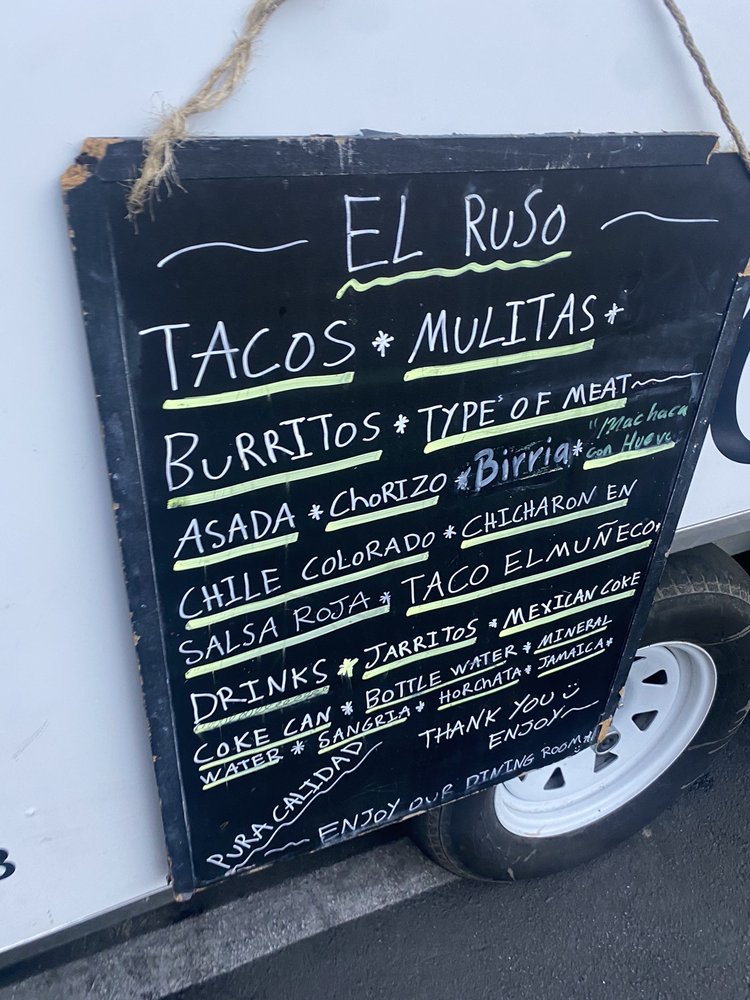 EL RUSO
TACOS * MULITAS *
BURRITOS * TYPE'S OF MEAT
ASADA * CHORIZO * Birria * "Machaca
con Huevo
CHILE COLORADO * CHICHARON EN
SALSA ROJA * TACO EL MUÑECO *
DRINKS * JARRITOS * MEXICAN COKE
COKE CAN * BOTTLE WATER * MINERAL
WATER * SANGRIA * HORCHATA * JAMAICA *
THANK YOU
ENJOY
PURA CALIDAD
ENJOY OUR DINING ROOM